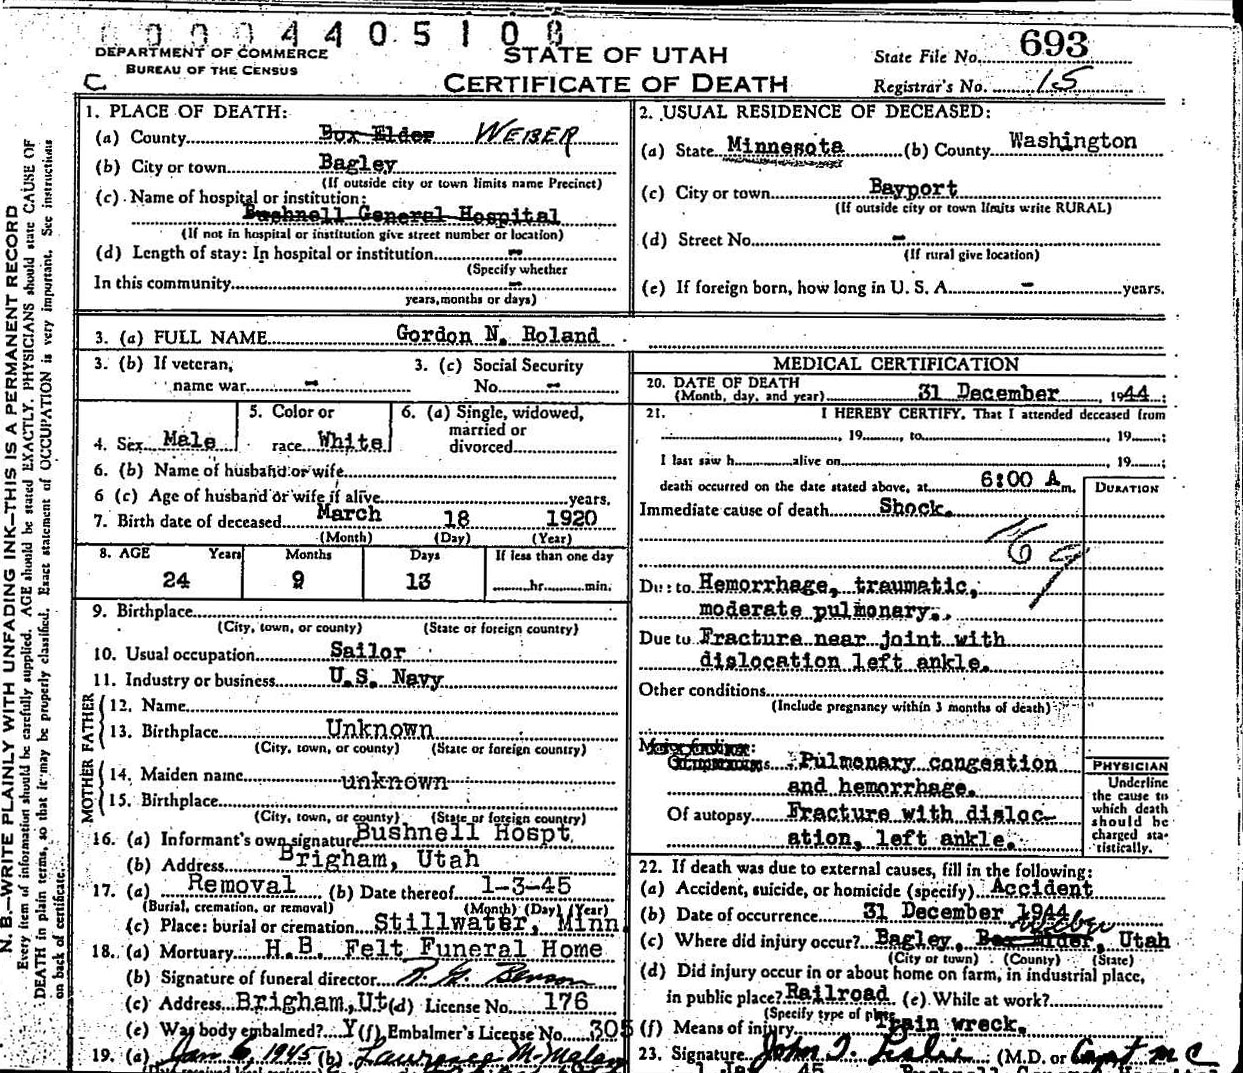 0 0 0 0 4 4 0 5 1 0 8
DEPARTMENT OF COMMERCE
BUREAU OF THE CENSUS
C.
STATE OF UTAH
CERTIFICATE OF DEATH
State File No. 693
Registrar's No. 15
N. B.—WRITE PLAINLY WITH UNFADING INK—THIS IS A PERMANENT RECORD
Every item of information should be carefully supplied. AGE should be stated EXACTLY. PHYSICIANS should state CAUSE OF
DEATH in plain terms, so that it may be properly classified. Exact statement of OCCUPATION is very important. See instructions
on back of certificate.
1. PLACE OF DEATH:
(a) County Box Elder WEBER
(b) City or town Bagley
(If outside city or town limits name Precinct)
(c) Name of hospital or institution:
Bushnell General Hospital
(If not in hospital or institution give street number or location)
(d) Length of stay: In hospital or institution -
(Specify whether
In this community -
years, months or days)
2. USUAL RESIDENCE OF DECEASED:
(a) State Minnesota (b) County Washington
(c) City or town Bayport
(If outside city or town limits write RURAL)
(d) Street No. -
(If rural give location)
(e) If foreign born, how long in U. S. A. - years.
3. (a) FULL NAME Gordon N. Roland
3. (b) If veteran, 3. (c) Social Security
name war - No. -
4. Sex Male
5. Color or
race White
6. (a) Single, widowed,
married or
divorced
6. (b) Name of husband or wife
6 (c) Age of husband or wife if alive years.
7. Birth date of deceased March 18 1920
(Month) (Day) (Year)
8. AGE Years Months Days If less than one day
24 9 13 hr. min.
9. Birthplace
(City, town, or county) (State or foreign country)
10. Usual occupation Sailor
11. Industry or business U.S. Navy
FATHER
12. Name
13. Birthplace Unknown
(City, town, or county) (State or foreign country)
MOTHER
14. Maiden name unknown
15. Birthplace
(City, town, or county) (State or foreign country)
16. (a) Informant's own signature Bushnell Hospt.
(b) Address Brigham, Utah
17. (a) Removal (b) Date thereof 1-3-45
(Burial, cremation, or removal) (Month) (Day) (Year)
(c) Place: burial or cremation Stillwater, Minn
18. (a) Mortuary H.B. Felt Funeral Home
(b) Signature of funeral director
(c) Address Brigham,Ut (d) License No. 176
(e) Was body embalmed? Y (f) Embalmer's License No. 305
19. (a) Jan 6, 1945 (b) Lawrence M.
MEDICAL CERTIFICATION
20. DATE OF DEATH
(Month, day, and year) 31 December, 1944;
21. I HEREBY CERTIFY, That I attended deceased from
, 19 , to , 19 ;
I last saw h alive on , 19 ;
death occurred on the date stated above, at 6:00 A m.
DURATION
Immediate cause of death Shock.
169
Due to Hemorrhage, traumatic,
moderate pulmonary.
Due to Fracture near joint with
dislocation left ankle.
Other conditions
(Include pregnancy within 3 months of death)
Major findings:
Pulmonary congestion
and hemorrhage.
Of autopsy Fracture with disloc-
ation, left ankle.
PHYSICIAN
Underline
the cause to
which death
should be
charged sta-
tistically.
22. If death was due to external causes, fill in the following:
(a) Accident, suicide, or homicide (specify) Accident
(b) Date of occurrence 31 December 1944
Weber
(c) Where did injury occur? Bagley, Box Elder, Utah
(City or town) (County) (State)
(d) Did injury occur in or about home on farm, in industrial place,
in public place? Railroad (e) While at work?
(Specify type of place
(f) Means of injury Train wreck.
23. Signature John J. Leslie (M.D. or Capt MC